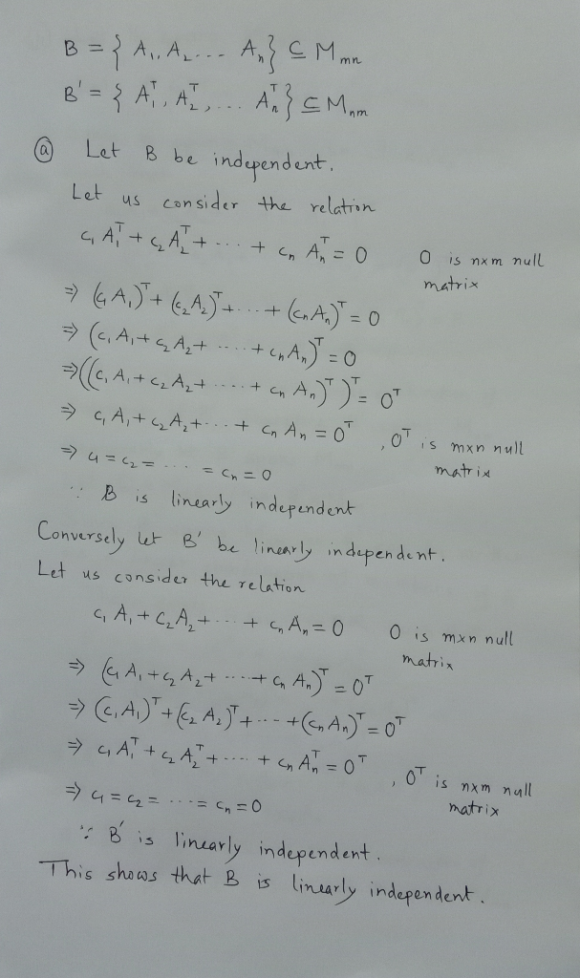 B = { A₁, A₂ ... Aₙ} ⊆ Mₘₙ
B' = { A₁ᵀ, A₂ᵀ, ... Aₙᵀ} ⊆ Mₙₘ
ⓐ Let B be independent.
Let us consider the relation
c₁ A₁ᵀ + c₂ A₂ᵀ + ... + cₙ Aₙᵀ = 0   0 is nxm null
matrix
⇒ (c₁A₁)ᵀ + (c₂A₂)ᵀ + ... + (cₙAₙ)ᵀ = 0
⇒ (c₁A₁ + c₂A₂ + ..... + cₙAₙ)ᵀ = 0
⇒ ((c₁A₁ + c₂A₂ + ..... + cₙ Aₙ)ᵀ)ᵀ = 0ᵀ
⇒ c₁A₁ + c₂A₂ + ... + cₙ Aₙ = 0ᵀ , 0ᵀ is mxn null
matrix
⇒ c₁ = c₂ = ..... = cₙ = 0
∵ B is linearly independent
Conversely let B' be linearly independent.
Let us consider the relation
c₁ A₁ + c₂ A₂ + ... + cₙ Aₙ = 0   0 is mxn null
matrix
⇒ (c₁A₁ + c₂A₂ + ... + cₙ Aₙ)ᵀ = 0ᵀ
⇒ (c₁A₁)ᵀ + (c₂ A₂)ᵀ + ... + (cₙAₙ)ᵀ = 0ᵀ
⇒ c₁ A₁ᵀ + c₂ A₂ᵀ + .... + cₙ Aₙᵀ = 0ᵀ , 0ᵀ is nxm null
matrix
⇒ c₁ = c₂ = ... = cₙ = 0
∵ B' is linearly independent.
This shows that B is linearly independent.